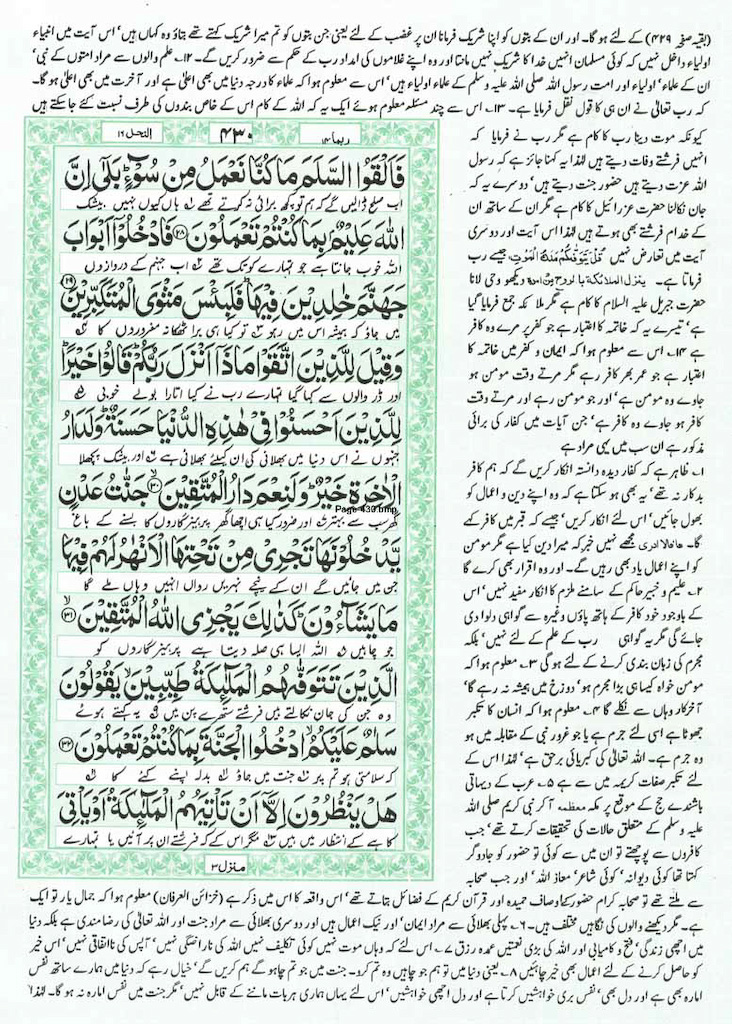 (بقیہ صفحہ ۴۲۹) کے لئے ہو گا۔ اور ان کے بتوں کو اپنا شریک فرمانا ان پر غضب کے لئے یعنی جن بتوں کو تم میرا شریک کہتے تھے بتاؤ وہ کہاں ہیں' اس آیت میں انبیاء
اولیاء داخل نہیں کہ کوئی مسلمان انہیں خدا کا شریک نہیں مانتا اور وہ اپنے غلاموں کی امداد رب کے حکم سے ضرور کریں گے۔ ۱۲۔ علم والوں سے مراد امتوں کے نبی'
ان کے علماء' اولیاء اور امت رسول اللہ صلی اللہ علیہ وسلم کے علماء اولیاء ہیں' اس سے معلوم ہوا کہ علماء کا درجہ دنیا میں بھی اعلیٰ ہے اور آخرت میں بھی اعلیٰ ہو گا۔
کہ رب تعالیٰ نے ان ہی کا قول نقل فرمایا ہے۔ ۱۳۔ اس سے چند مسئلہ معلوم ہوئے ایک یہ کہ اللہ کے کام اس کے خاص بندوں کی طرف نسبت کئے جا سکتے ہیں
ربما ۱۴
۴۳۰
النحل ۱۶
فَاَلْقَوُا السَّلَمَ مَا كُنَّا نَعْمَلُ مِنْ سُوْٓءٍ ؕ بَلٰۤى اِنَّ
اب صلح ڈالیں گے کہ ہم تو کچھ برائی نہ کرتے تھے ہاں کیوں نہیں بیشک
اللّٰهَ عَلِيْمٌۢ بِمَا كُنْتُمْ تَعْمَلُوْنَ ﴿۲۸﴾ فَادْخُلُوْۤا اَبْوَابَ
اللہ خوب جانتا ہے جو تمہارے کوتک تھے اب جہنم کے دروازوں
جَهَنَّمَ خٰلِدِيْنَ فِيْهَا ؕ فَلَبِئْسَ مَثْوَى الْمُتَكَبِّرِيْنَ ﴿۲۹﴾
میں جاؤ کہ ہمیشہ اس میں رہو تو کیا ہی برا ٹھکانہ مغروروں کا
وَقِيْلَ لِلَّذِيْنَ اتَّقَوْا مَاذَاۤ اَنْزَلَ رَبُّكُمْ ؕ قَالُوْا خَيْرًا ؕ
اور ڈر والوں سے کہا گیا تمہارے رب نے کیا اتارا بولے خوبی
لِلَّذِيْنَ اَحْسَنُوْا فِيْ هٰذِهِ الدُّنْيَا حَسَنَةٌ ؕ وَلَدَارُ
جنہوں نے اس دنیا میں بھلائی کی ان کیلئے بھلائی ہے اور بیشک پچھلا
الْاٰخِرَةِ خَيْرٌ ؕ وَلَنِعْمَ دَارُ الْمُتَّقِيْنَ ﴿۳۰﴾ جَنّٰتُ عَدْنٍ
گھر سب سے بہتر اور ضرور کیا ہی اچھا گھر پرہیزگاروں کا بسنے کے باغ
Page-430.bmp
يَّدْخُلُوْنَهَا تَجْرِيْ مِنْ تَحْتِهَا الْاَنْهٰرُ لَهُمْ فِيْهَا
جن میں جائیں گے ان کے نیچے نہریں رواں انہیں وہاں ملے گا
مَا يَشَآءُوْنَ ؕ كَذٰلِكَ يَجْزِي اللّٰهُ الْمُتَّقِيْنَ ﴿۳۱﴾
جو چاہیں اللہ ایسا ہی صلہ دیتا ہے پرہیزگاروں کو
الَّذِيْنَ تَتَوَفّٰهُمُ الْمَلٰٓئِكَةُ طَيِّبِيْنَ ۙ يَقُوْلُوْنَ
وہ جن کی جان نکالتے ہیں فرشتے ستھرے پن میں یہ کہتے ہوئے
سَلٰمٌ عَلَيْكُمُ ۙ ادْخُلُوا الْجَنَّةَ بِمَا كُنْتُمْ تَعْمَلُوْنَ ﴿۳۲﴾
کہ سلامتی ہو تم پر جنت میں جاؤ بدلہ اپنے کئے کا
هَلْ يَنْظُرُوْنَ اِلَّاۤ اَنْ تَاْتِيَهُمُ الْمَلٰٓئِكَةُ اَوْ يَاْتِيَ
کاہے کے انتظار میں ہیں مگر اس کے کہ فرشتے ان پر آئیں یا تمہارے
منزل ۳
کیونکہ موت دینا رب کا کام ہے مگر رب نے فرمایا کہ
انہیں فرشتے وفات دیتے ہیں لہٰذا یہ کہنا جائز ہے کہ رسول
اللہ عزت دیتے ہیں حضور جنت دیتے ہیں' دوسرے یہ کہ
جان نکالنا حضرت عزرائیل کا کام ہے مگر ان کے ساتھ ان
کے خدام فرشتے بھی ہوتے ہیں لہٰذا اس آیت اور دوسری
آیت میں تعارض نہیں قُلْ يَتَوَفّٰكُمْ مَلَكُ الْمَوْتِ جیسے رب
فرماتا ہے۔ ینزل الملائکۃ بالروح من امرہ دیکھو وحی لانا
حضرت جبریل علیہ السلام کا کام ہے مگر ملائکہ جمع فرمایا گیا
ہے' تیسرے یہ کہ خاتمہ کا اعتبار ہے جو کفر پر مرے وہ کافر
ہے ۱۴۔ اس سے معلوم ہوا کہ ایمان و کفر میں خاتمہ کا
اعتبار ہے جو عمر بھر کافر رہے مگر مرتے وقت مومن ہو
جاوے وہ مومن ہے' اور جو مومن رہے اور مرتے وقت
کافر ہو جاوے وہ کافر ہے' جن آیات میں کفار کی برائی
مذکور ہے ان سب میں یہی مراد ہے
۱۔ ظاہر ہے کہ کفار دیدہ دانستہ انکار کریں گے کہ ہم کافر
بدکار نہ تھے' یہ بھی ہو سکتا ہے کہ وہ اپنے دین و اعمال کو
بھول جائیں' اس لئے انکار کریں' جیسے کہ قبر میں کافر کہے
گا۔ ھاہ لا ادری مجھے نہیں خبر کہ میرا دین کیا ہے مگر مومن
کو اپنے اعمال یاد بھی رہیں گے۔ اور وہ اقرار بھی کرے گا
۲۔ علیم و خبیر حاکم کے سامنے ملزم کا انکار مفید نہیں' اس
کے باوجود خود کافر کے ہاتھ پاؤں وغیرہ سے گواہی دلوا دی
جائے گی مگر یہ گواہی رب کے علم کے لئے نہیں' بلکہ
مجرم کی زبان بندی کرنے کے لئے ہو گی ۳۔ معلوم ہوا کہ
مومن خواہ کیسا ہی بڑا مجرم ہو' دوزخ میں ہمیشہ نہ رہے گا'
آخر کار وہاں سے نکلے گا ۴۔ معلوم ہوا کہ انسان کا تکبر
جھوٹا ہے اسی لئے جرم ہے یا جو غرور نبی کے مقابلہ میں ہو
وہ جرم ہے۔ اللہ تعالیٰ کی کبریائی برحق ہے' لہٰذا اس کے
لئے تکبر صفات کریمہ میں سے ہے ۵۔ عرب کے دیہاتی
باشندے حج کے موقع پر مکہ معظمہ آ کر نبی کریم صلی اللہ
علیہ وسلم کے متعلق حالات کی تحقیقات کرتے تھے' جب
کافروں سے پوچھتے تو ان میں سے کوئی تو حضور کو جادوگر
کہتا تھا کوئی دیوانہ' کوئی شاعر' معاذ اللہ' اور جب صحابہ
سے ملتے تھے تو صحابہ کرام حضور کے اوصاف حمیدہ اور قرآن کریم کے فضائل بتاتے تھے' اس واقعہ کا اس میں ذکر ہے (خزائن العرفان) معلوم ہوا کہ جمال یار تو ایک
ہے۔ مگر دیکھنے والوں کی نگاہیں مختلف ہیں۔ ۶۔ پہلی بھلائی سے مراد ایمان' اور نیک اعمال ہیں اور دوسری بھلائی سے مراد جنت اور اللہ تعالیٰ کی رضامندی ہے بلکہ دنیا
میں اچھی زندگی' فتح و کامیابی اور اللہ کی بڑی نعمتیں عمدہ رزق ۷۔ اس لئے کہ وہاں موت نہیں کوئی تکلیف نہیں اللہ کی ناراضگی نہیں' آپس کی نااتفاقی نہیں' اس خیر
کو حاصل کرنے کے لئے اعمال بھی خیر چاہئیں ۸۔ یعنی دنیا میں تو ہم جو چاہیں وہ تم کرو۔ جنت میں جو تم چاہو گے ہم کریں گے' خیال رہے کہ دنیا میں ہمارے ساتھ نفس
امارہ بھی ہے اور دل بھی' نفس بری خواہشیں کرتا ہے اور دل اچھی خواہشیں' اس لئے یہاں ہماری ہر بات ماننے کے قابل نہیں' مگر جنت میں نفس امارہ نہ ہو گا۔ لہٰذا